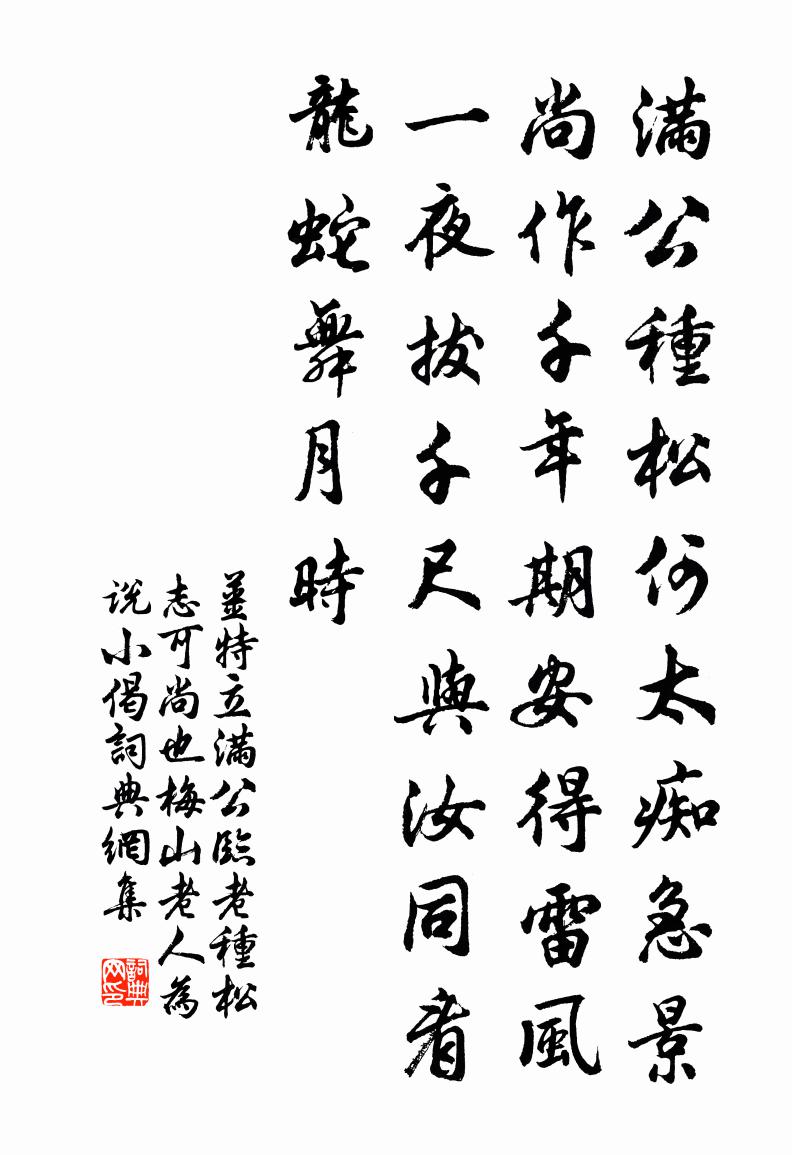 滿公種松何太痴急景
尚作千年期安得雷風
一夜拔千尺與汝同看
龍蛇舞月時
姜特立滿公臨老種松
志可尚也梅山老人為
說小偈詞典網集
詞典網印